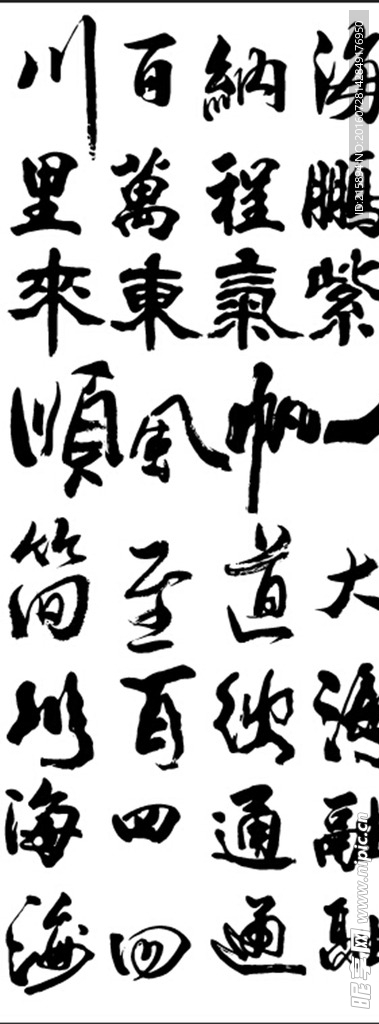 海納百川
鵬程萬里
紫氣東來
一帆風順
大道至簡
海納百川
融通四海
融通四海
ID:215804 NO:20160728142849176950
昵享网 www.nipic.cn